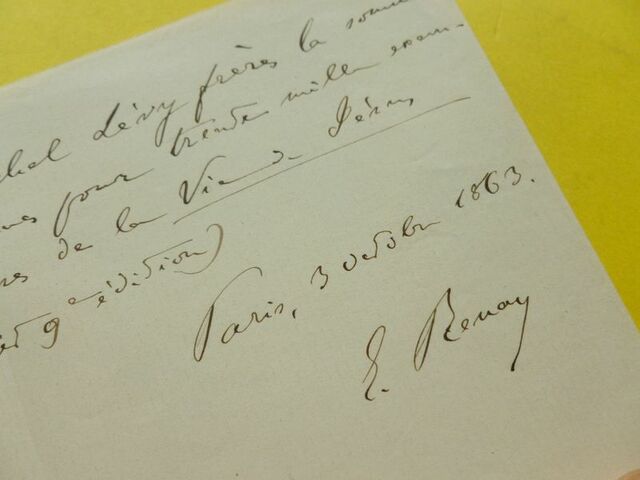 chel Lévy frères la somm
pour trente mille exem-
res de la Vie de Jésus
et 9e édition)
Paris, 3 octobre 1863.
E. Renan